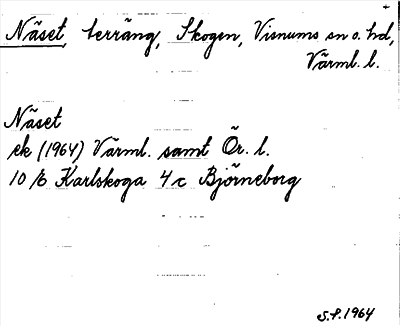 Näset, terräng, Skogen, Visnums sn o. hd,
Värml. l.
Näset
ek (1964) Värml. samt Ör. l.
10 E Karlskoga 4 c Björneborg
S.P. 1964